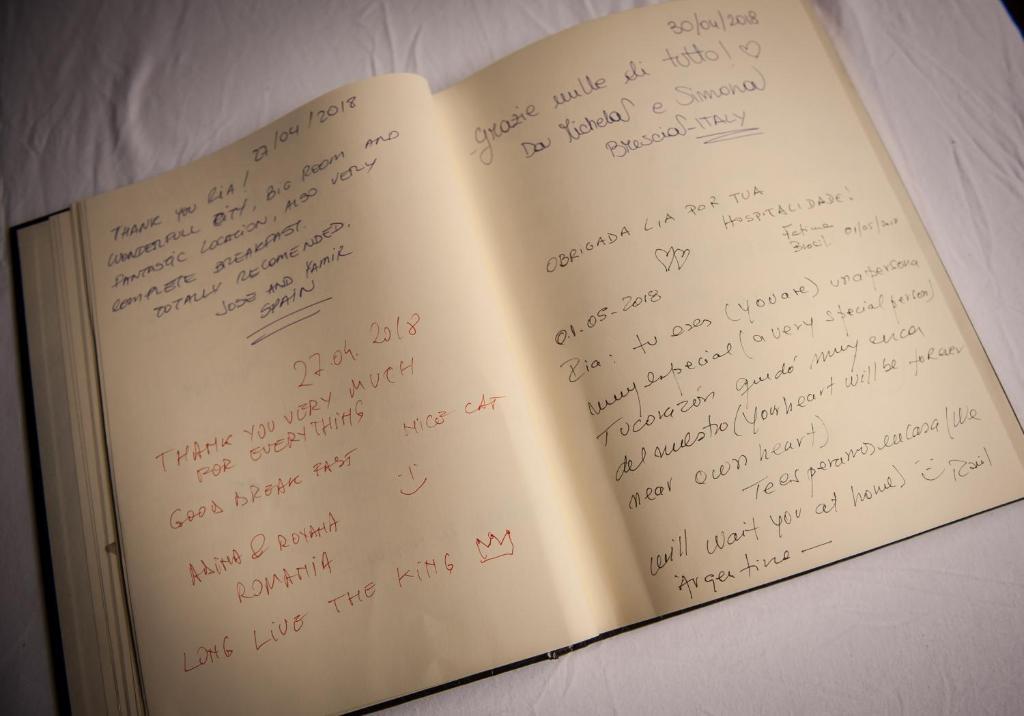 27/04/2018
THANK YOU RIA!
WONDERFULL CITY, BIG ROOM AND
FANTASTIC LOCATION, ALSO VERY
COMPLETE BREAKFAST.
TOTALLY RECOMENDED.
JOSE AND YAMIR
SPAIN
27.04.2018
THANK YOU VERY MUCH
FOR EVERYTHING
GOOD BREAK FAST NICE CAT
:)
ALINA & ROXANA
ROMANIA
LONG LIVE THE KING
30/04/2018
Grazie mille di tutto! ♡
Da Michela e Simona
Brescia-ITALY
OBRIGADA LIA POR TUA
HOSPITALIDADE!
Fatima
Brasil 01/05/2018
01-05-2018
Ria: tu eres (you are) una persona
muy especial (a very special person)
Tu corazón quedó muy cerca
del nuestro (your heart will be forever
near ours heart)
Te esperamos en casa (We
will wait you at home) Raúl
Argentina —